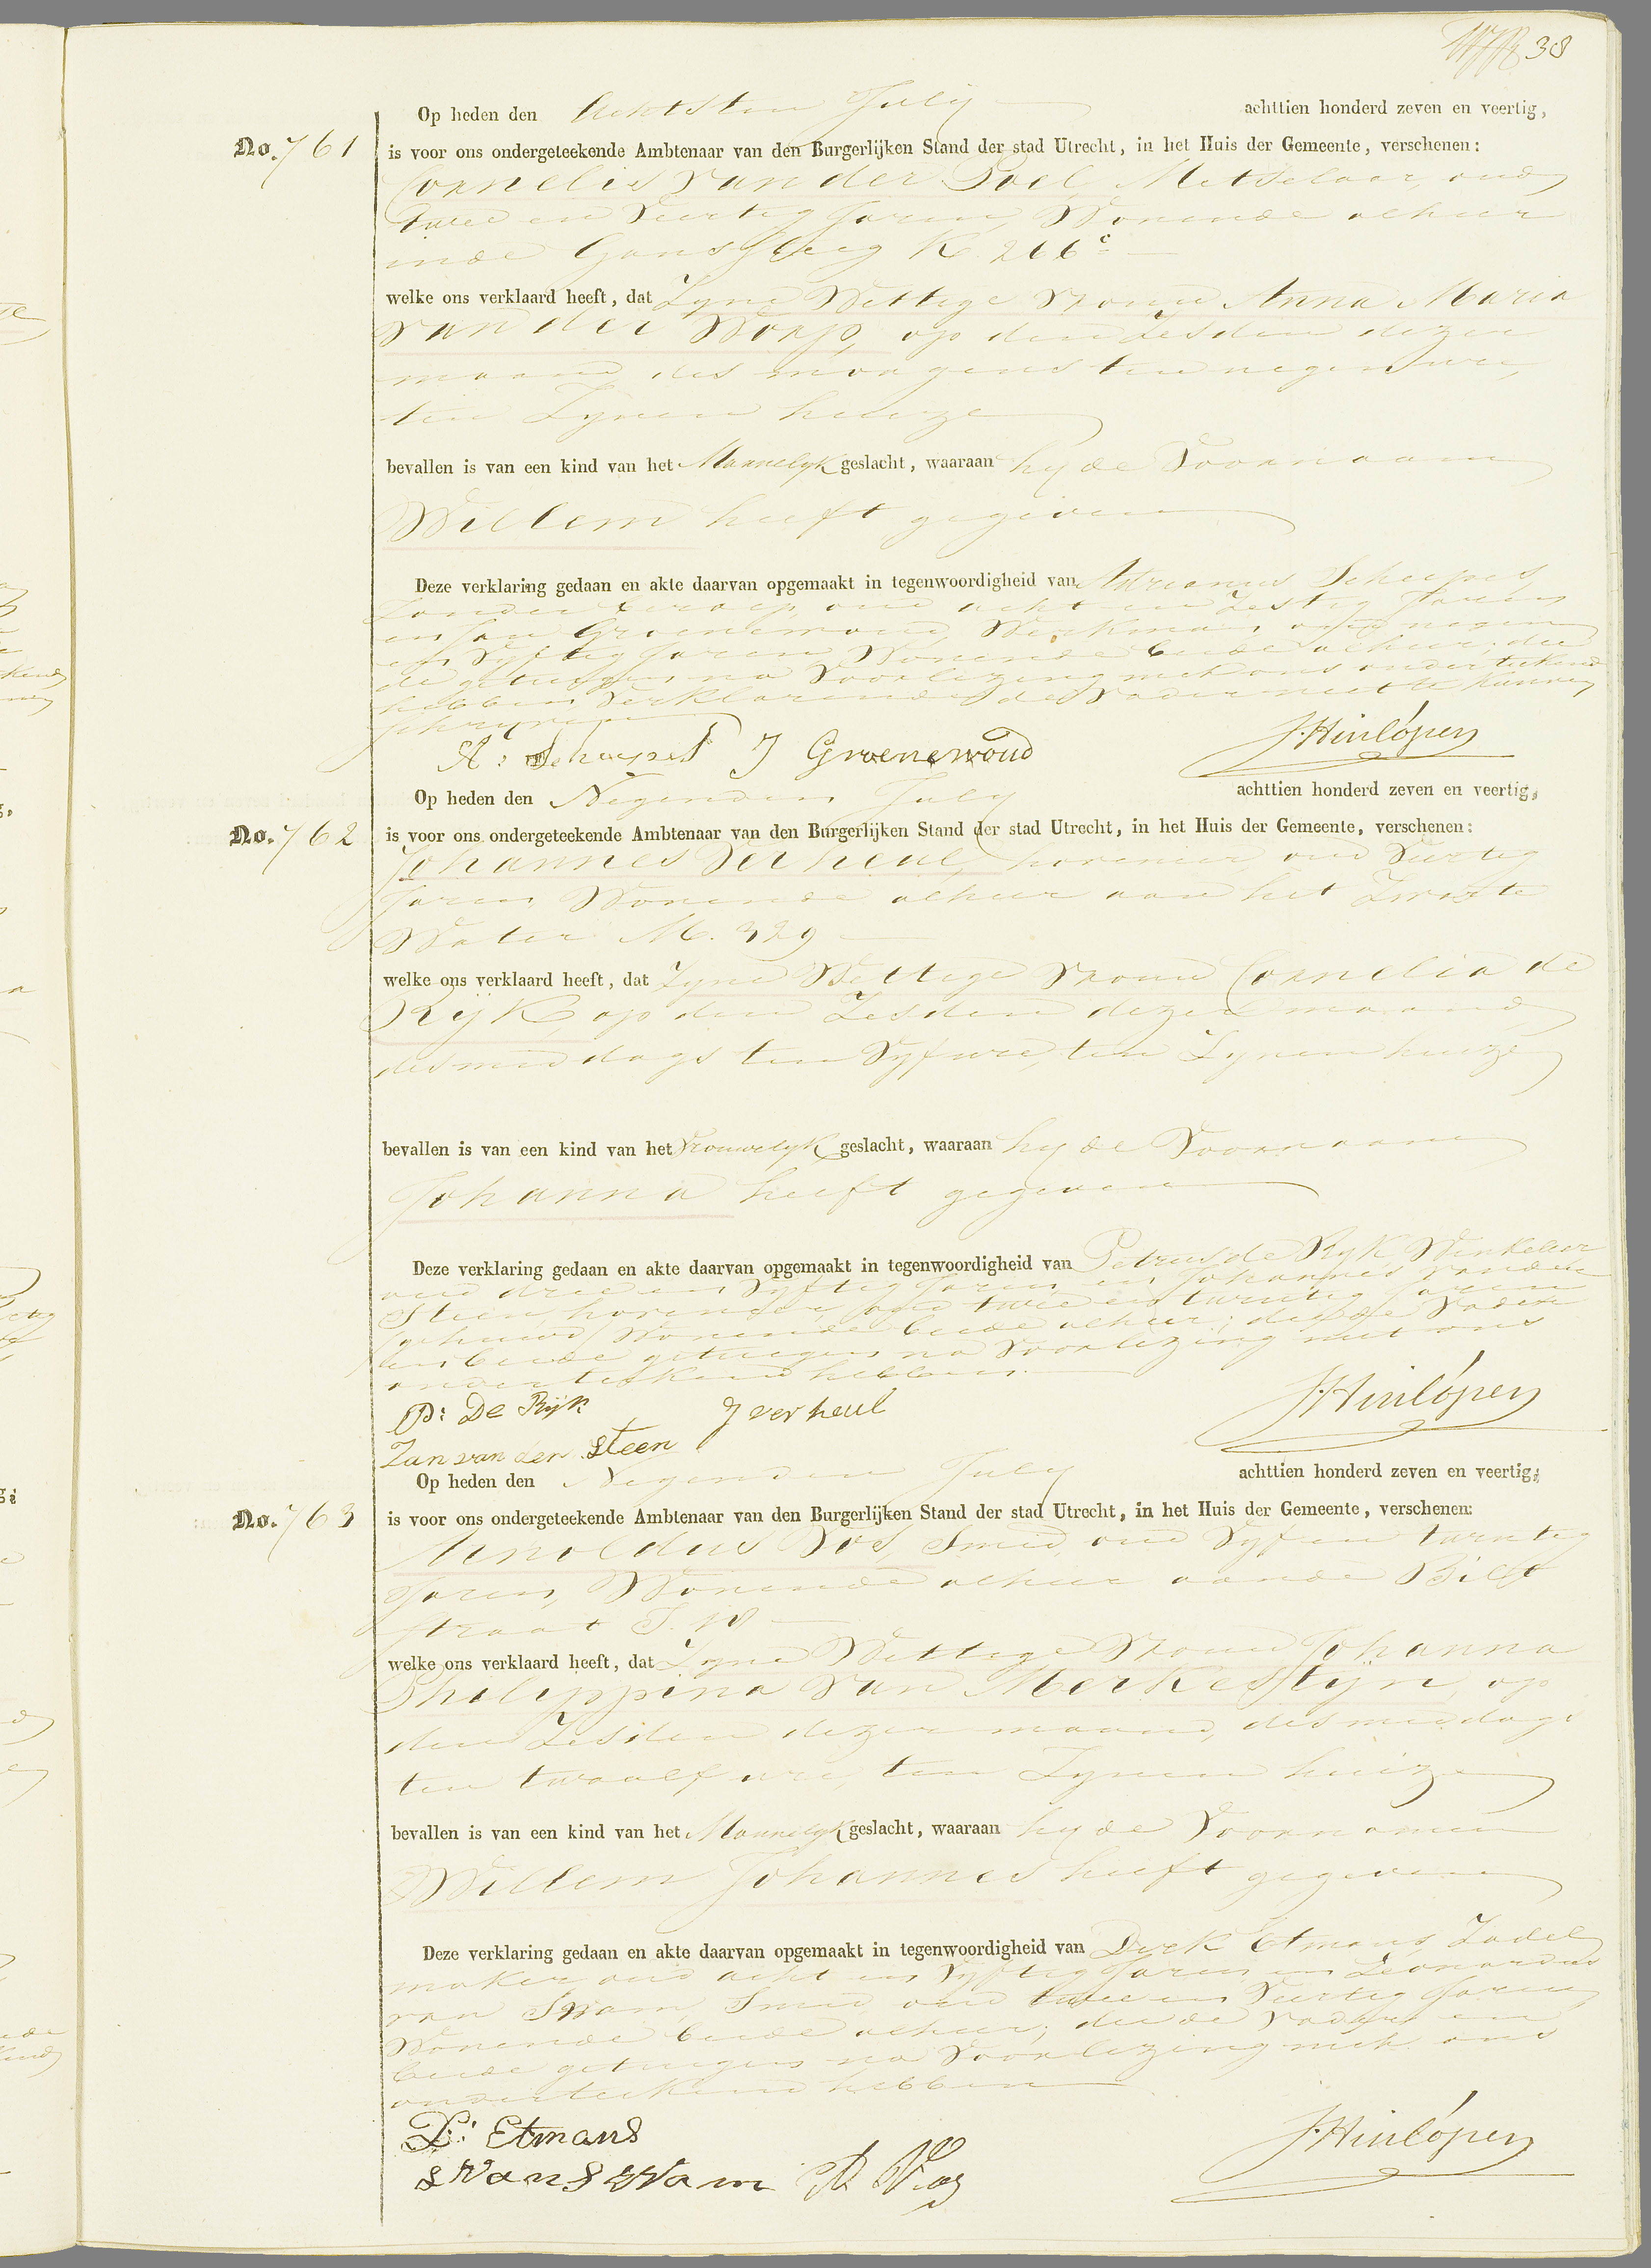 38
Op heden den Achtsten July achttien honderd zeven en veertig,
No. 761 is voor ons ondergeteekende Ambtenaar van den Burgerlijken Stand der stad Utrecht, in het Huis der Gemeente, verschenen:
Cornelis van der Poel, Metselaar, oud
twee en Veertig Jaren, Wonende alhier
inde Ganssteeg K. 266c
welke ons verklaard heeft, dat Zyne Wettige Vrouw Anna Maria
van der Worp, op den Zesden dezer
maand des morgens ten negen ure,
ten Zynen huize
bevallen is van een kind van het Mannelyk geslacht, waaraan hy de Voornaam
Willem heeft gegeven
Deze verklaring gedaan en akte daarvan opgemaakt in tegenwoordigheid van Adrianus Scheepes
Zonder beroep, oud acht en Zestig Jaren
en Jan Groenewoud, Werkman oud negen
en Vyftig Jaren Wonende beide alhier; die
de getuigen na Voorlezing met ons onderteekend
hebben Verklarende de Vader niet te kunnen
schryven
A: Scheypes J Groenewoud J. Hinlópen
Op heden den Negenden July achttien honderd zeven en veertig,
No. 762 is voor ons ondergeteekende Ambtenaar van den Burgerlijken Stand der stad Utrecht, in het Huis der Gemeente, verschenen:
Johannes Verheul, hovenier, oud Veertig
Jaren Wonende alhier aan het Zwarte
Water M. 329
welke ons verklaard heeft, dat Zyne Wettige Vrouw Cornelia de
Ryk, op den Zesden dezer maand
des middags ten Vyf ure, ten Zynen huize
bevallen is van een kind van het Vrouwelyk geslacht, waaraan hy de Voornaam
Johanna heeft gegeven
Deze verklaring gedaan en akte daarvan opgemaakt in tegenwoordigheid van Petrus de Ryk, Winkelier
oud drie en Vyftig Jaren en Johannes van den
Steen, hovenier, oud twee en twintig Jaren
gehuwd Wonende beide alhier; die de Vader
en beide getuigen na Voorlezing met ons
onderteekend hebben.
P: De Rijk J verheul J. Hinlópen
Jan van den Steen
Op heden den Negenden July achttien honderd zeven en veertig,
No. 763 is voor ons ondergeteekende Ambtenaar van den Burgerlijken Stand der stad Utrecht, in het Huis der Gemeente, verschenen:
Arnoldus Vos, Smid, oud Vyf en twintig
Jaren, Wonende alhier aan de Bilt
straat I. 18
welke ons verklaard heeft, dat Zyne Wettige Vrouw Johanna
Philippina van Merkesteyn, op
den Zesden dezer maand, des middags
ten twaalf ure ten Zynen huize
bevallen is van een kind van het Mannelyk geslacht, waaraan hy de Voornamen
Willem Johannes heeft gegeven
Deze verklaring gedaan en akte daarvan opgemaakt in tegenwoordigheid van Dirk Etmans, Zadel
maker oud acht en Vyftig Jaren en Leonardus
van Swam, Smid, oud twee en Veertig Jaren
Wonende beide alhier; die de Vader en
beide getuigen na Voorlezing met ons
onderteekend hebben
D: Etmans J. Hinlópen
L van Swam A Vos